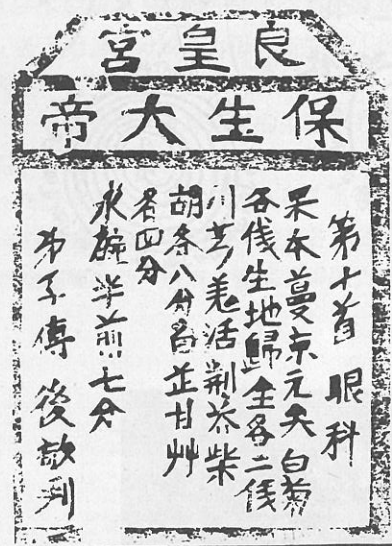 良皇宮
保生大帝
第十首 眼科
杲本蔓京元天白菊
各伐生地歸全各二伐
川芎羗活荆芥柴
胡各八分白芷甘艸
各四分
水碗半煎七分
弟子傅後敬刋